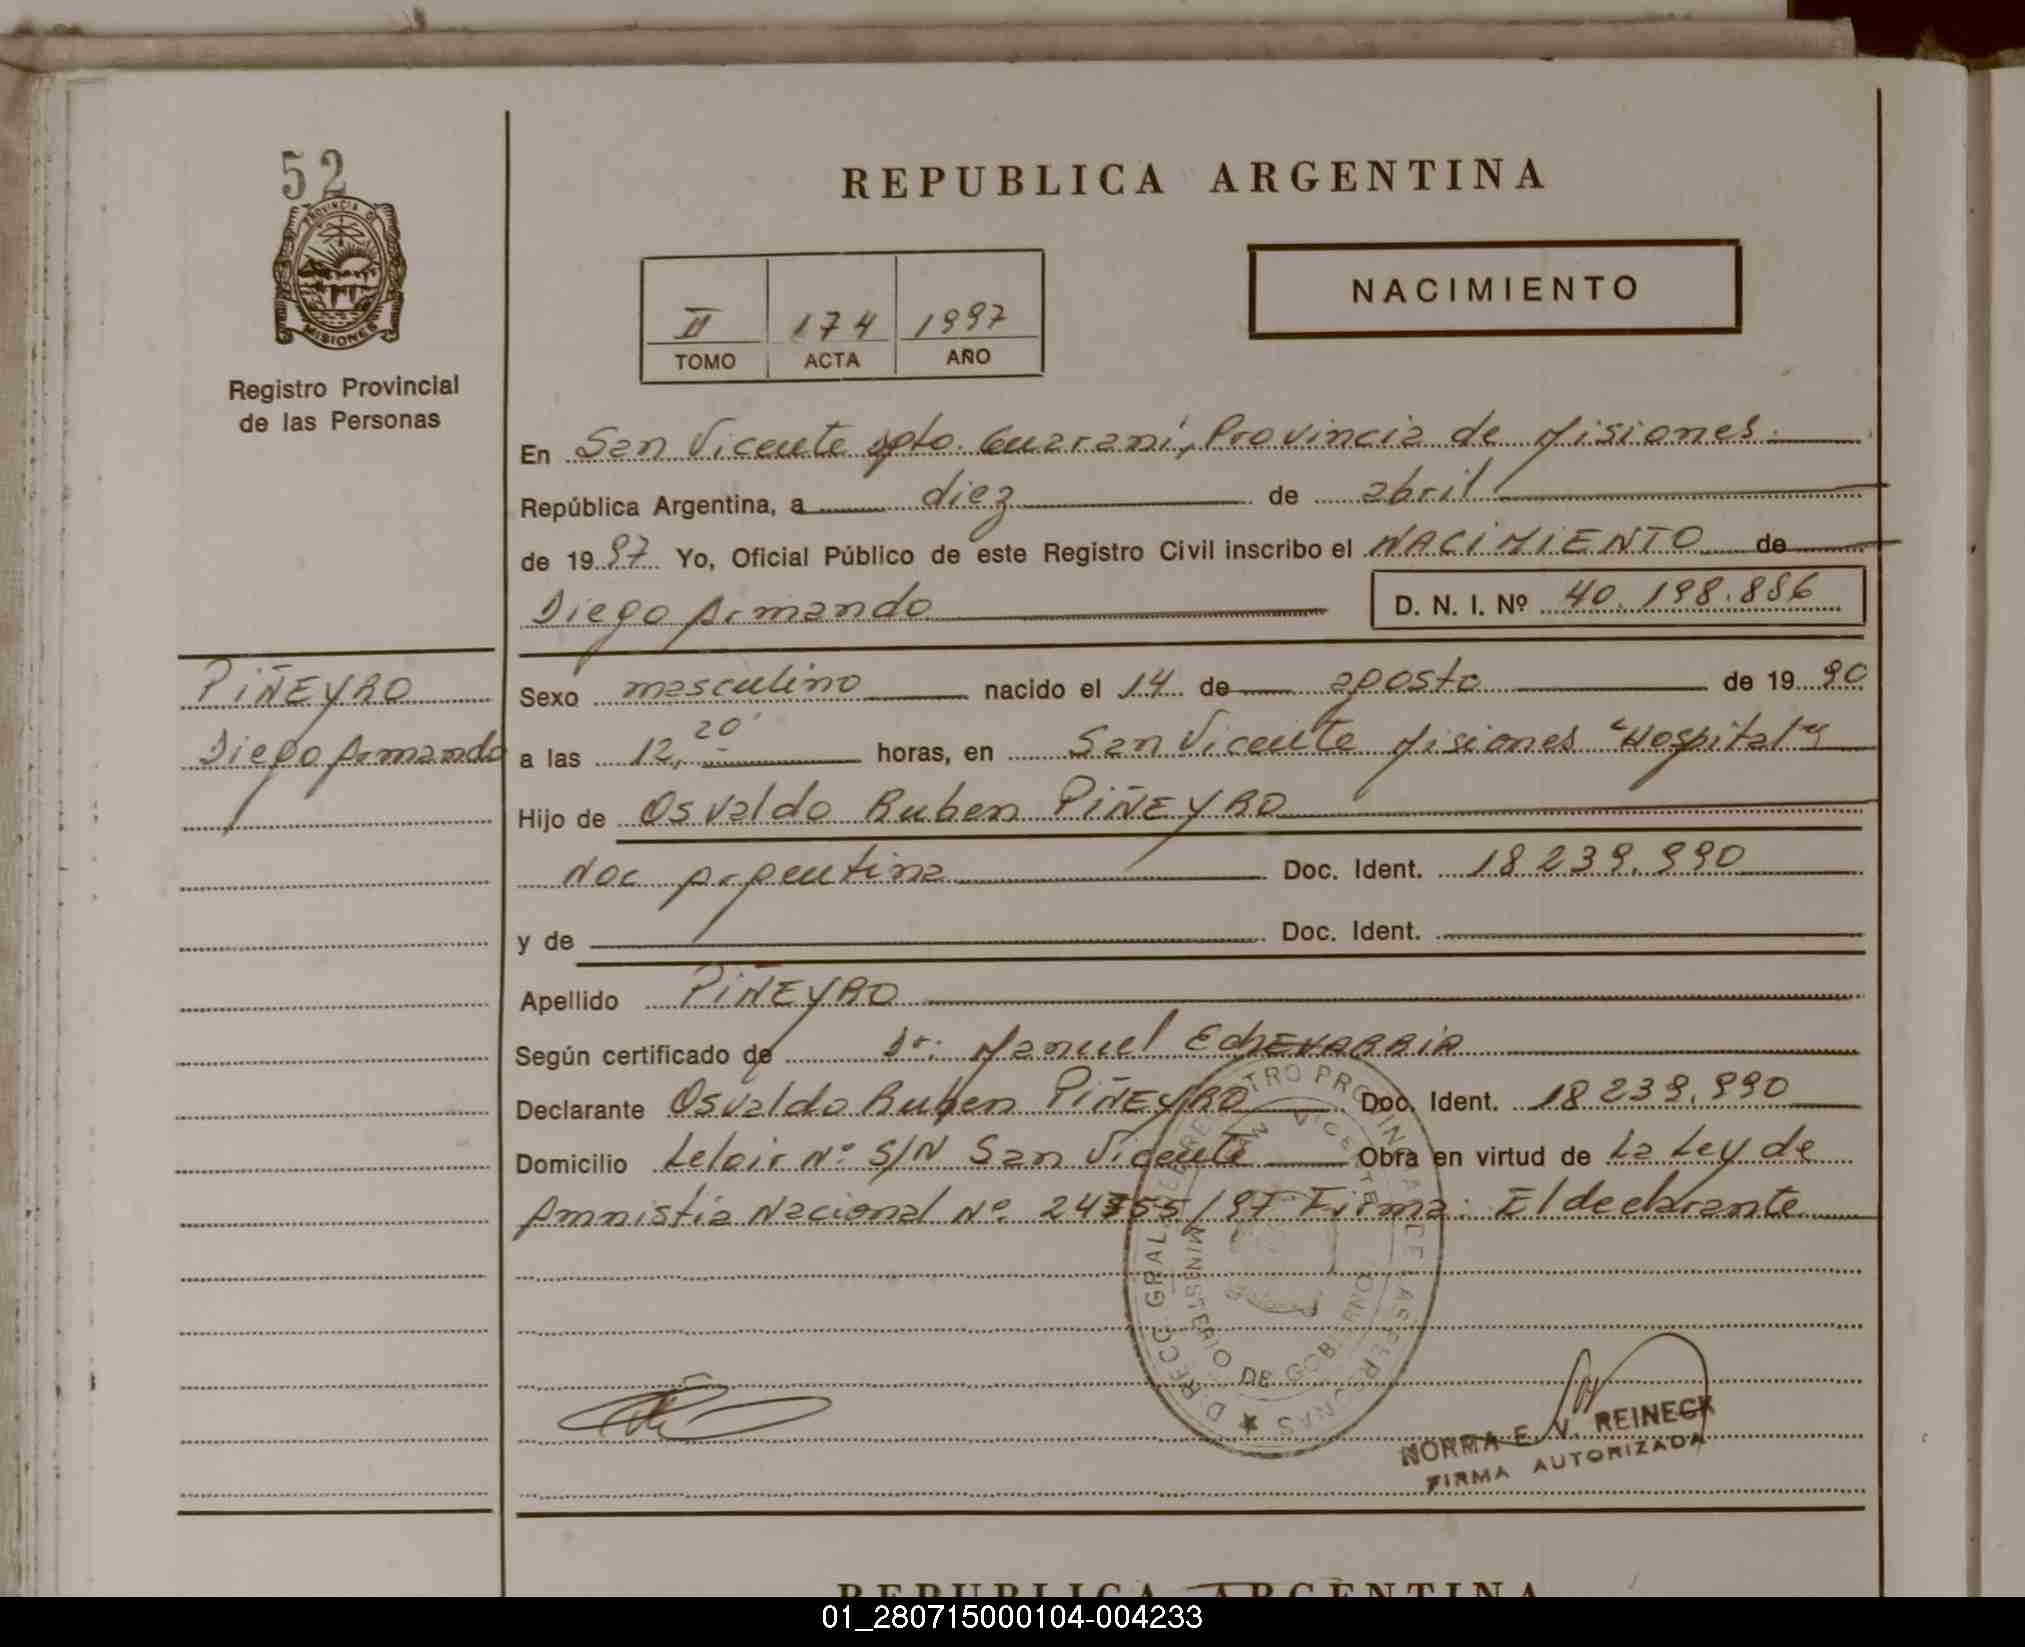 52
PROVINCIA DE
MISIONES
Registro Provincial
de las Personas
REPUBLICA ARGENTINA
NACIMIENTO
II 174 1997
TOMO ACTA AÑO
En San Vicente dpto. Guaraní, Provincia de Misiones.
República Argentina, a diez de abril
de 1997 Yo, Oficial Público de este Registro Civil inscribo el NACIMIENTO de
Diego Armando D. N. I. Nº 40.198.886
PIÑEYRO
Diego Armando
Sexo masculino nacido el 14 de agosto de 1990
a las 12,20' horas, en San Vicente Misiones "Hospital"
Hijo de Osvaldo Ruben PIÑEYRO
Nac Argentina Doc. Ident. 18239.990
y de Doc. Ident.
Apellido PIÑEYRO
Según certificado de Dr. Manuel EChEVARRIA
Declarante Osvaldo Ruben PIÑEYRO Doc. Ident. 18239.990
Domicilio Leloir Nº S/N San Vicente Obra en virtud de La Ley de
Amnistia Nacional Nº 24755/97 Firma: El declarante
DIRECC. GRAL. DE REGISTRO PROVINCIAL DE LAS PERSONAS
SAN VICENTE
MINISTERIO DE GOBIERNO
NORMA E. V. REINECK
FIRMA AUTORIZADA
REPUBLICA ARGENTINA
01_280715000104-004233